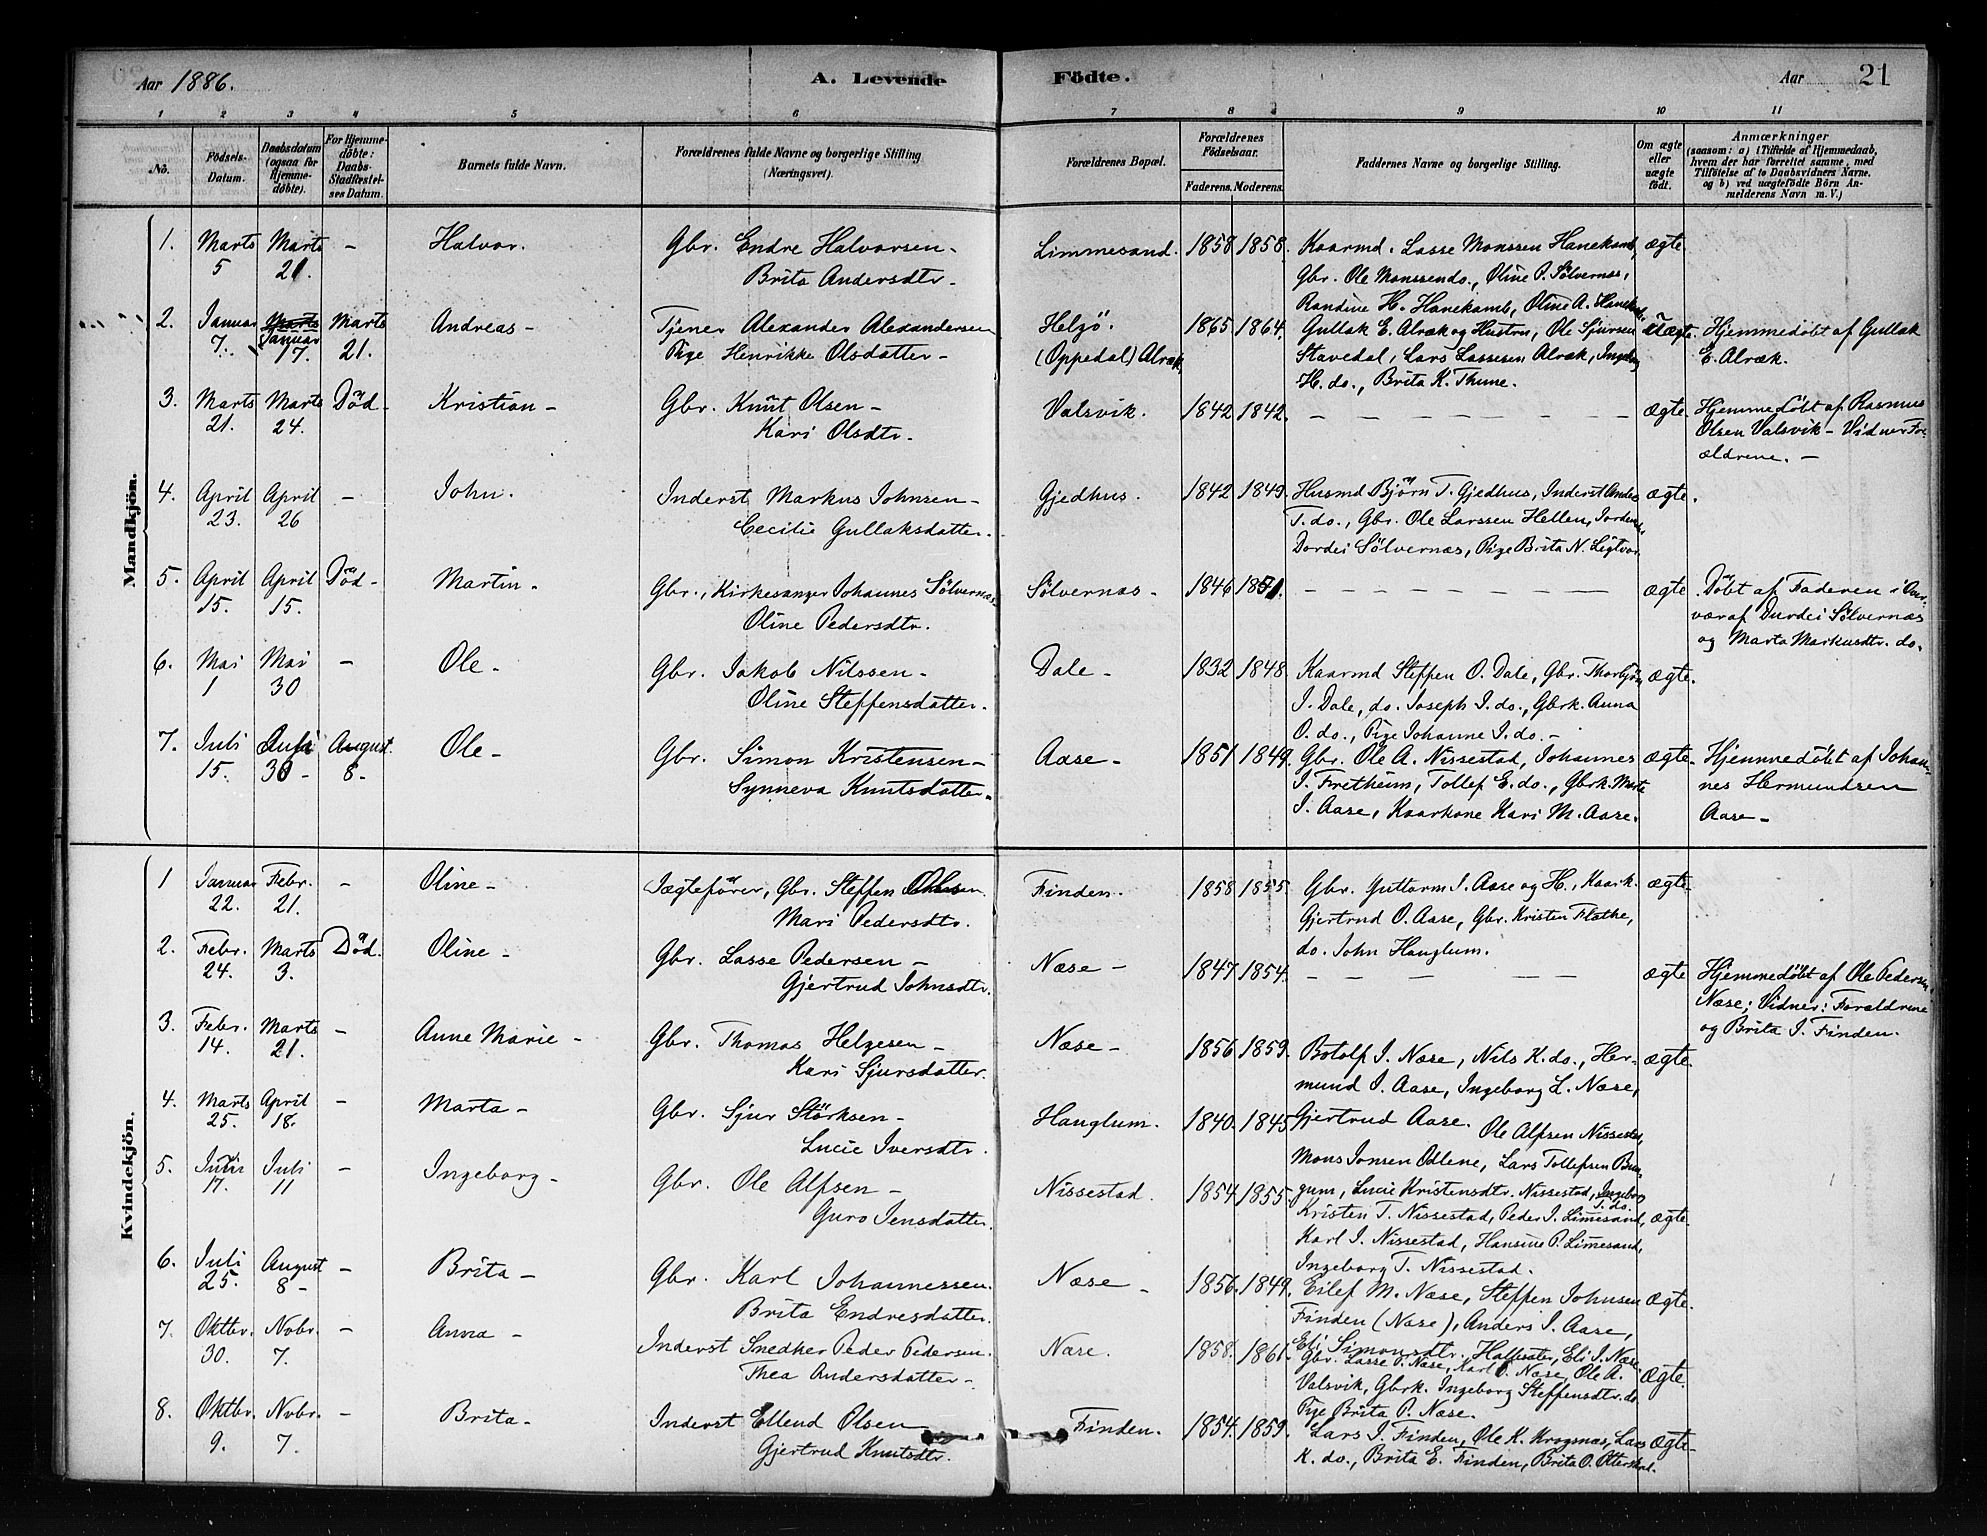 Aar 1886.
A. Levende Födte.
Aar 21
1 2 3 4 5 6 7 8 9 10 11
No.
Födsels-Datum.
Daabsdatum (ogsaa for Hjemmedöbte).
For Hjemmedöbte: Daabs-Stadfæstelses Datum.
Barnets fulde Navn.
Forældrenes fulde Navne og borgerlige Stilling (Næringsvei).
Forældrenes Bopæl.
Forældrenes Födselsaar.
Faderens. Moderens.
Faddernes Navne og borgerlige Stilling.
Om ægte eller uægte födt.
Anmærkninger
(saasom: a) i Tilfælde af Hjemmedaab,
hvem der har forrettet samme, med
Tilföielse af to Daabsvidners Navne,
og b) ved uægtefödte Börn An-
melderens Navn m. V.)
Mandkjön.
1. Marts 5 Marts 21. – Halvor. Gbr. Endre Halvorsen – Brita Andersdtr – Limmesand. 1858 1858. Kaarmd. Lasse Monssen Hanekamb, ægte
Gbr. Ole Monssen do., Oline P. Sölvernæs,
Randine H. Hanekamb, Oline A. Hanekamb.
2. Januar 7. Januar 17. Marts 21. Andreas – Tjener Alexander Alexandersen Pige Henrikke Olsdatter – Helgö. (Oppedal) Alræk 1865 1864. Gullak E. Alræk og Hustru, Ole Sjursen Uægte. Hjemmedöbt af Gullak
Stavedal, Lars Lassesen Alræk, Ingebor E. Alræk.
H. do., Brita K. Thune.
3. Marts 21. Marts 24. Död – Kristian – Gbr. Knut Olsen – Kari Olsdtr. Valsvik. 1842 1842. – – – – – – – – ægte. Hjemmedöbt af Rasmus
Olsen Valsvik – Vidner For-
ældrene. –
4. April 23. April 26 – John. Inderst Markus Johnsen – Cecilie Gullaksdatter. Gjedhus. 1842 1849. Husmd Björn T. Gjedhus, Inderst Andres ægte.
T. do., Gbr. Ole Larssen Hellen,
Dordei Sölvernæs, Pige Brita N. Ligtvor.
5. April 15. April 15. Död – Martin – Gbr., Kirkesanger Johannes Sölvernæs Oline Pedersdtr. Sölvernæs – 1846 1851. – – – – – – – – ægte. Döbt af Faderen i Over-
vær af Durdei Sölvernæs
og Marta Markusdtr. do.
6. Mai 1 Mai 30 – Ole – Gbr. Jakob Nilssen – Oline Steffensdatter. Dale – 1832 1848. Kaarmd Steffen O. Dale, Gbr. Thorbjörn ægte.
I. Dale, do. Joseph I. do., Gbrk. Anna
O. do., Pige Johanne I. do. –
7. Juli 15. Juli 30 – August 8 – Ole – Gbr. Simon Kristensen – Synneva Knutsdatter – Aase – 1851 1849. Gbr. Ole A. Nissestad, Johannes ægte – Hjemmedöbt af Johan-
I. Fretheim, Tollef E. do., Gbrk. Marte nes Hermundsen
I. Aase, Kaarkone Kari M. Aase. Aase –
Kvindekjön.
1 Januar 22. Febr. 21. – Oline – Jægtefører, Gbr. Steffen Olsen Mari Pedersdtr. Finden. 1858 1855. Gbr. Guttorm I. Aase og H., Kaark. ægte
Gjertrud O. Aase, Gbr. Kristen Flathe,
do. John Hauglum.
2. Febr. 24. Marts 3. Död. Oline – Gbr. Lasse Pedersen – Gjertrud Johnsdtr. Næse – 1847. 1854. – – – – – ægte Hjemmedöbt af Ole Pedersen
Næse; Vidner: Forældrene
og Brita I. Finden.
3. Febr. 14. Marts 21. – Anne Marie – Gbr. Thomas Helgesen – Kari Sjursdatter. Næse – 1856 1859. Botolf I. Næse, Nils K. do., Her- ægte.
mund I. Aase, Ingeborg L. Næse,
Gjertrud Aase.
4. Marts 25. April 18. – Marta – Gbr. Sjur Störksen – Lucie Iversdtr. Hauglum. 1840. 1845 Ole Alfsen Nissestad,
Mons Jonsen Odlene, Lars Tollefsen Bun-
gum, Lucie Kristensdtr. Nissestad, Ingeborg T. do.
5. Juni 17. Juli 11 – Ingeborg – Gbr. Ole Alfsen – Guro Jensdatter. Nissestad. 1854 1855. Kristen T. Nissestad, Peder I. Limesand, ægte.
Karl I. Nissestad, Hansine P. Limesand,
Ingeborg T. Nissestad.
6. Juli 25. August 8 – – Brita – Gbr. Karl Johannessen. Brita Endresdatter. Næse – 1856. 1849. Eilef M. Næse, Steffen Johnsen ægte.
Finden (Næse), Anders I. Aase,
Eli Simonsdtr. Eli I. Næse.
7. Oktbr. 30. Novbr. 7. – Anna – Inderst Snedker Peder Pedersen. Thea Andersdatter – Næse. 1858. 1861. Gbr. Lasse P. Næse, Karl O. Næse, Ole A. ægte.
Valsvik, Gbrk. Ingeborg Steffensdtr. do.
Pige Brita P. Næse.
8. Oktbr. 9. Novbr. 7 – Brita – Inderst Ellend Olsen Gjertrud Knutsdtr. Finden. 1854. 1859. Lars I. Finden, Ole K. Krogsnæs, Lars ægte –
K. do., Brita E. Finden, Brita O.